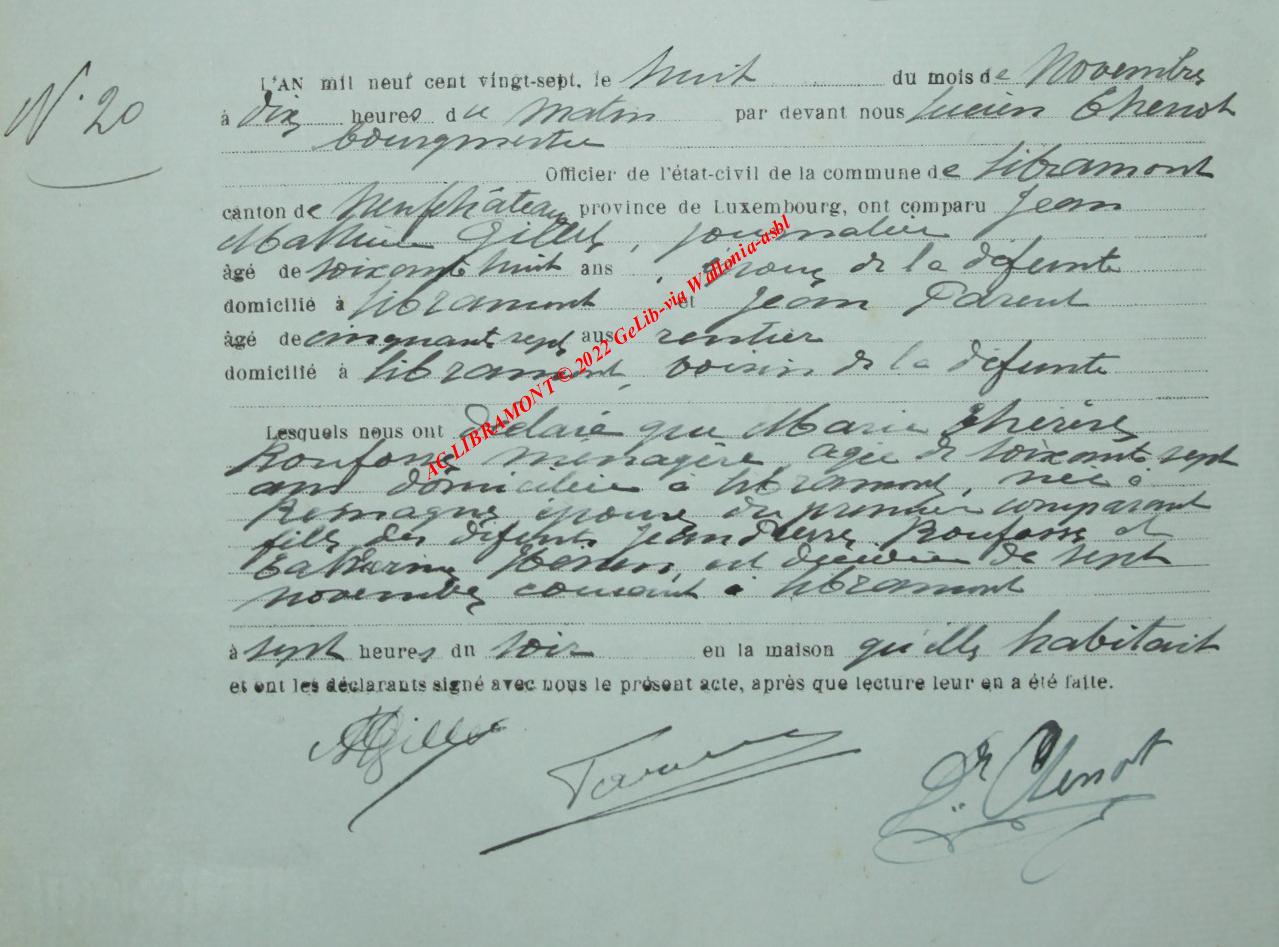 N° 20
L'AN mil neuf cent vingt-sept, le huit du mois de Novembre
à dix heures du matin par devant nous Lucien Chenot
bourgmestre
Officier de l'état-civil de la commune de Libramont
canton de Neufchâteau province de Luxembourg, ont comparu Jean
Mathieu Gillet, journalier
âgé de soixante huit ans, époux de la défunte
domicilié à Libramont et Jean Parent
âgé de cinquante sept ans rentier
domicilié à Libramont, voisin de la défunte
Lesquels nous ont déclaré que Marie Thérèse
Roufosse ménagère, agée de soixante sept
ans domiciliée à Libramont, née à
Remagne épouse du premier comparant
fille des défunts Jean Pierre Roufosse et
Catherine est décédée le sept
novembre courant à Libramont
à sept heures du soir en la maison qu'elle habitait
et ont les déclarants signé avec nous le présent acte, après que lecture leur en a été faite.
Gillet Parent Dr Chenot
AG LIBRAMONT © 2022 GeLib-via Wallonia-asbl